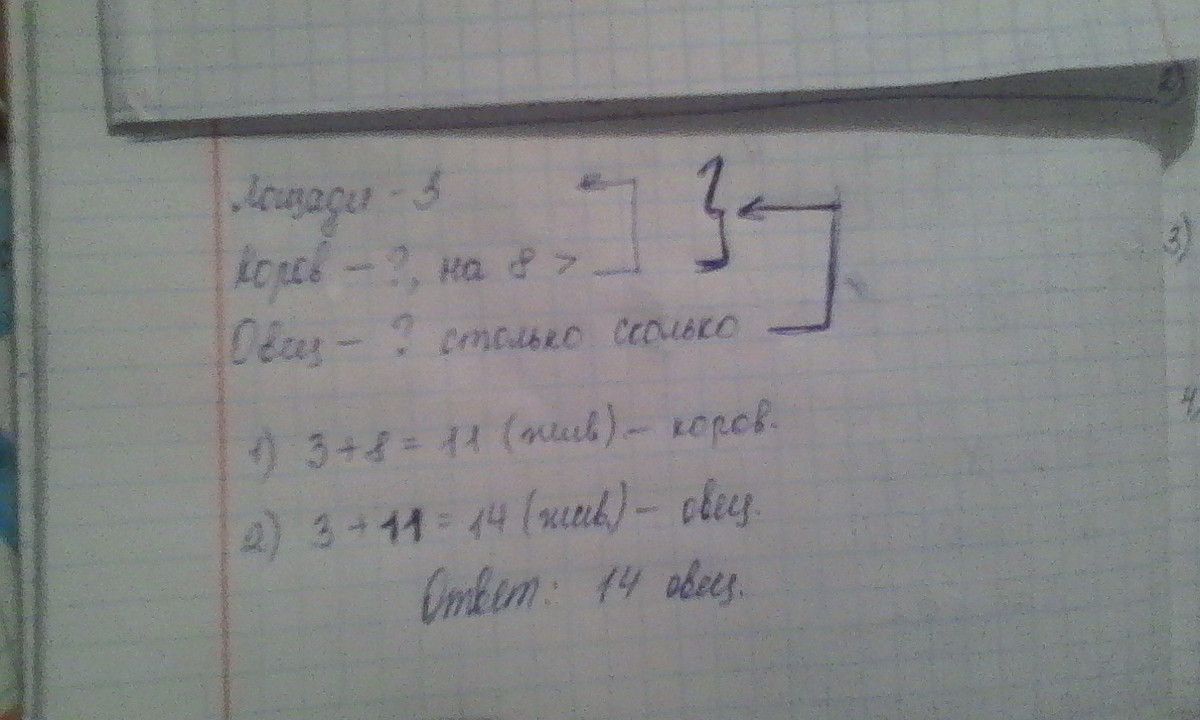 2)
Лошади - 3
3)
Коров - ?, на 8 >
Овец - ? столько сколько
4
1) 3 + 8 = 11 (жив) - коров.
2) 3 + 11 = 14 (жив.) - овец.
Ответ: 14 овец.